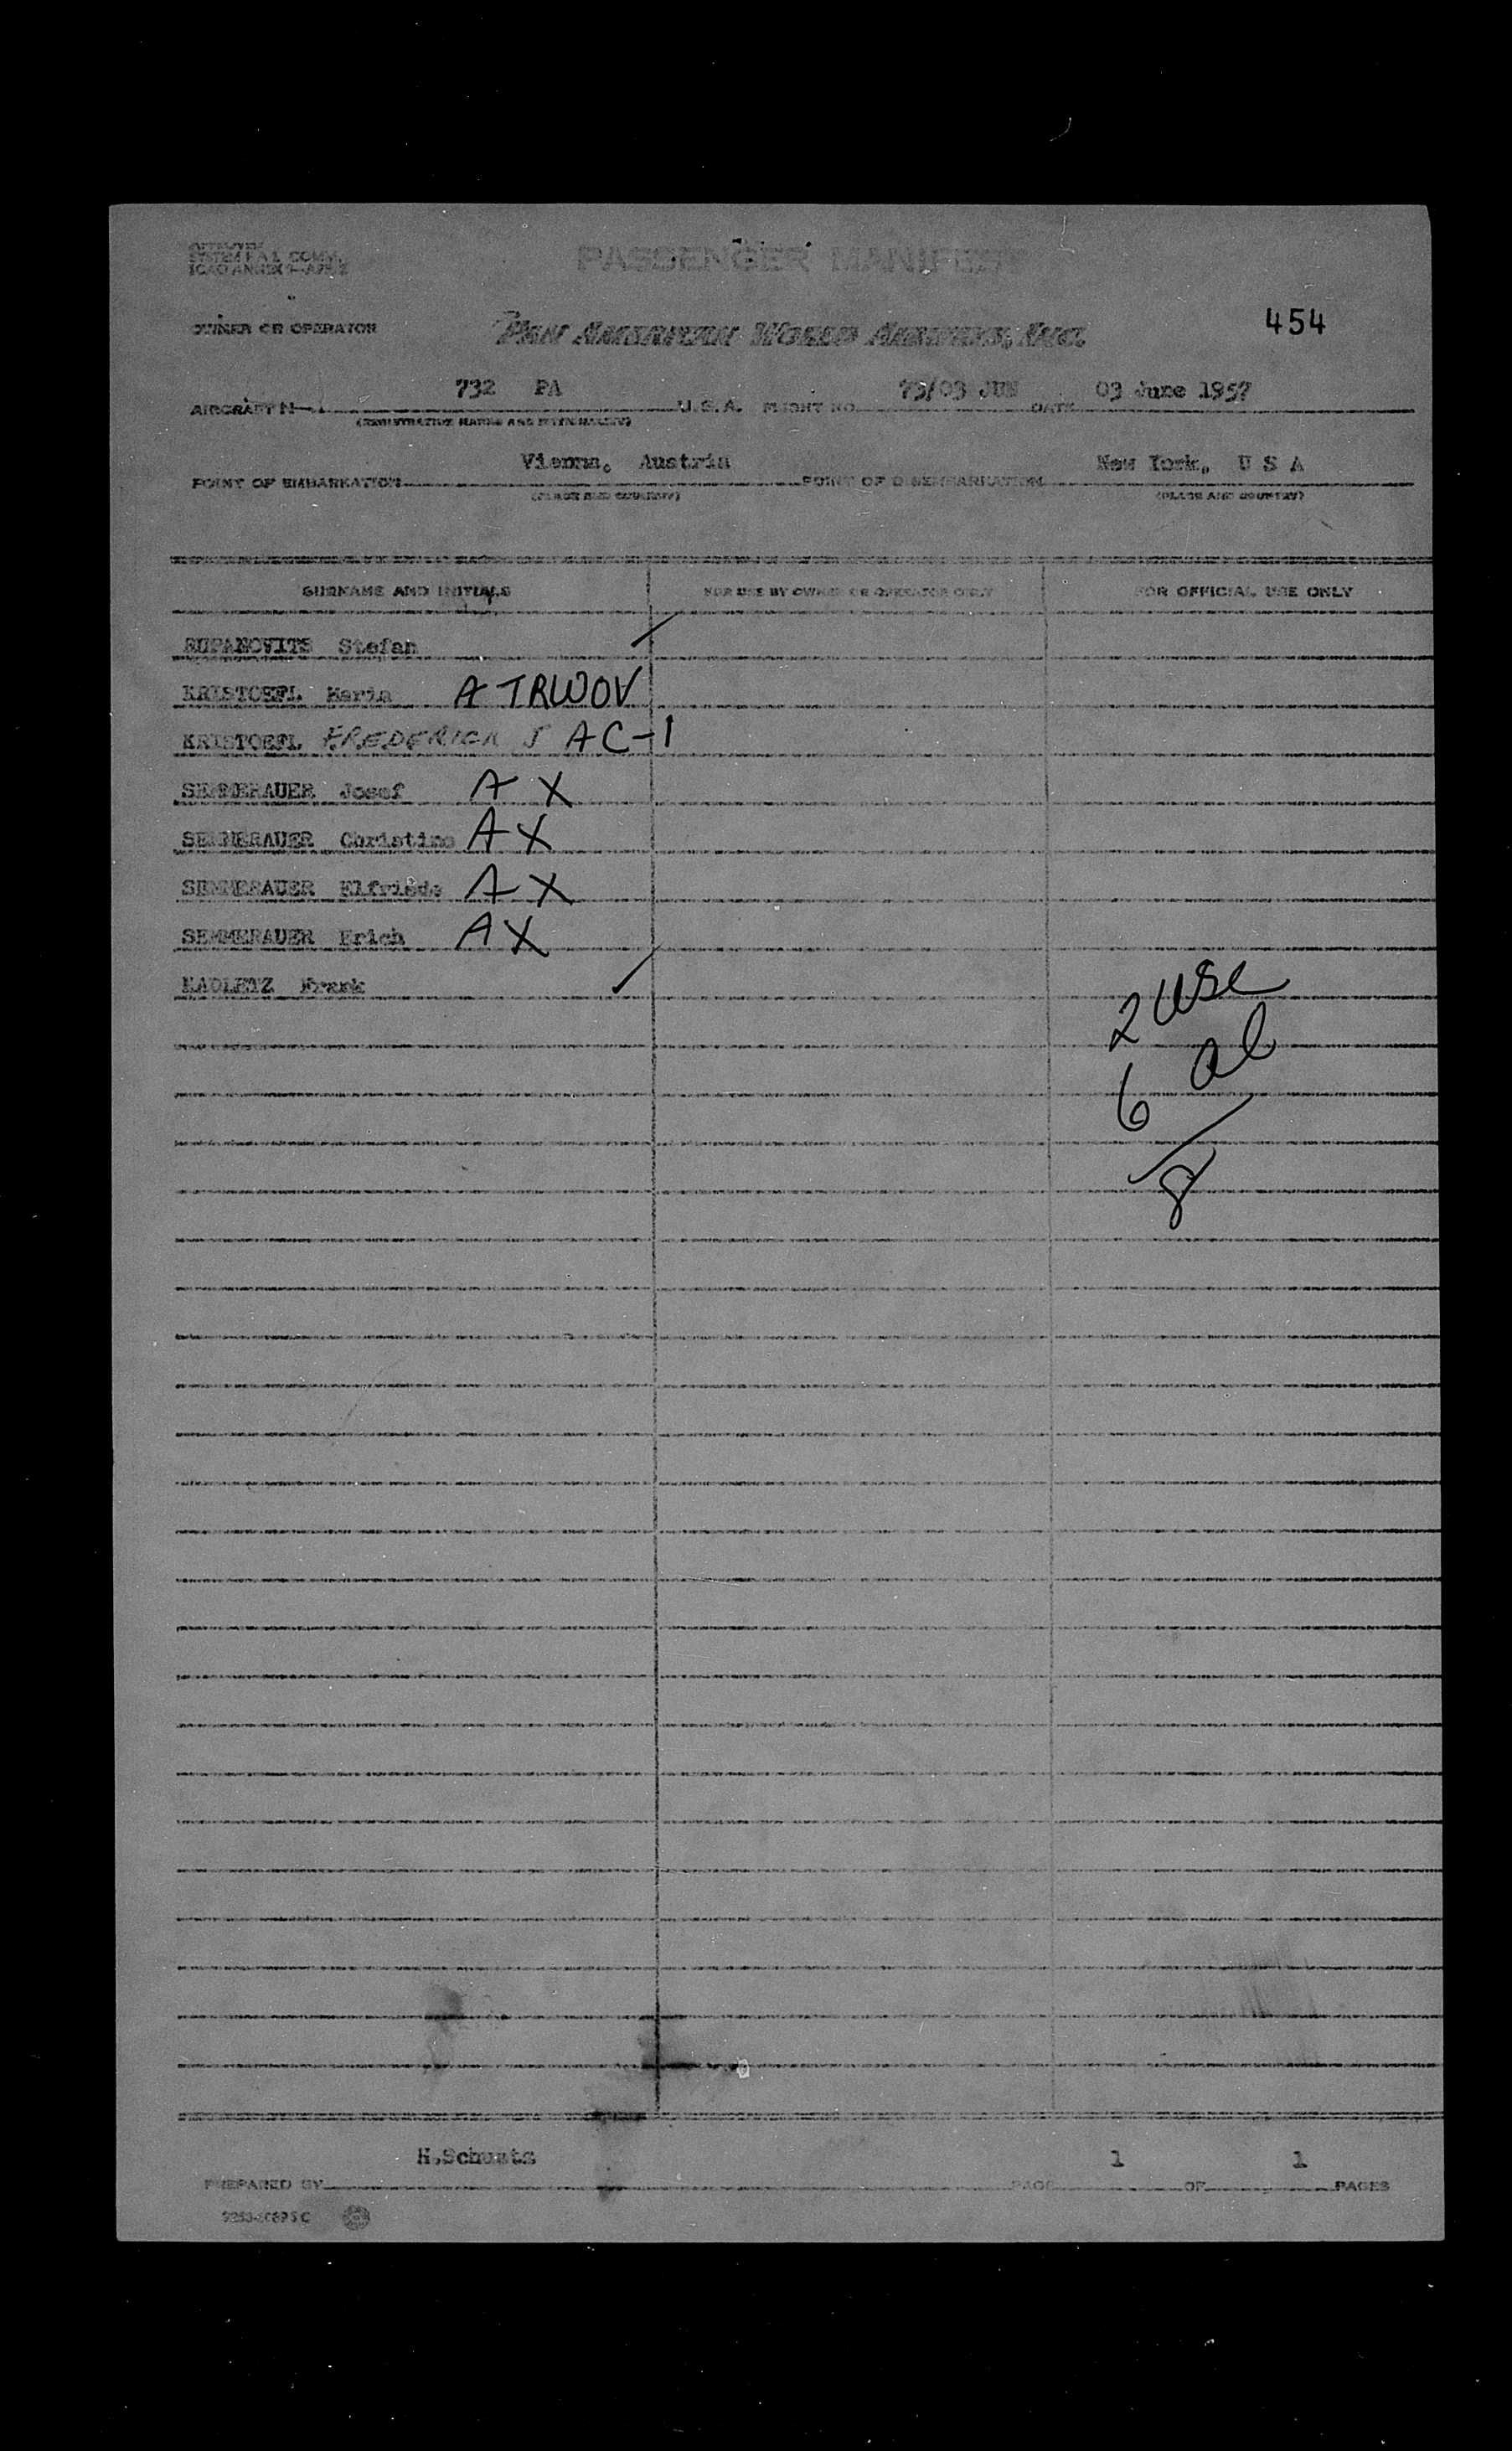 SYSTEM F.A.L. COMM.
ICAO ANNEX 9—APP. 2
PASSENGER MANIFEST
OWNER OR OPERATOR
PAN AMERICAN WORLD AIRWAYS, INC.
454
AIRCRAFT N— 732 PA U.S.A. FLIGHT NO. 73/03 JUN DATE 03 June 1957
(REGISTRATION MARKS AND NATIONALITY)
POINT OF EMBARKATION Vienna, Austria POINT OF DISEMBARKATION New York, U S A
(PLACE AND COUNTRY) (PLACE AND COUNTRY)
SURNAME AND INITIALS FOR USE BY OWNER OR OPERATOR ONLY FOR OFFICIAL USE ONLY
Stefan
KRISTOEFL Maria A TRWOV
KRISTOEFL FREDERICK J AC-1
SEMMERAUER Josef A X
SEMMERAUER Christine A X
SEMMERAUER Elfriede A X
SEMMERAUER Erich A X
KADLETZ Frank
2 usc
6 al
8
H.Schuets
PREPARED BY PAGE 1 OF 1 PAGES